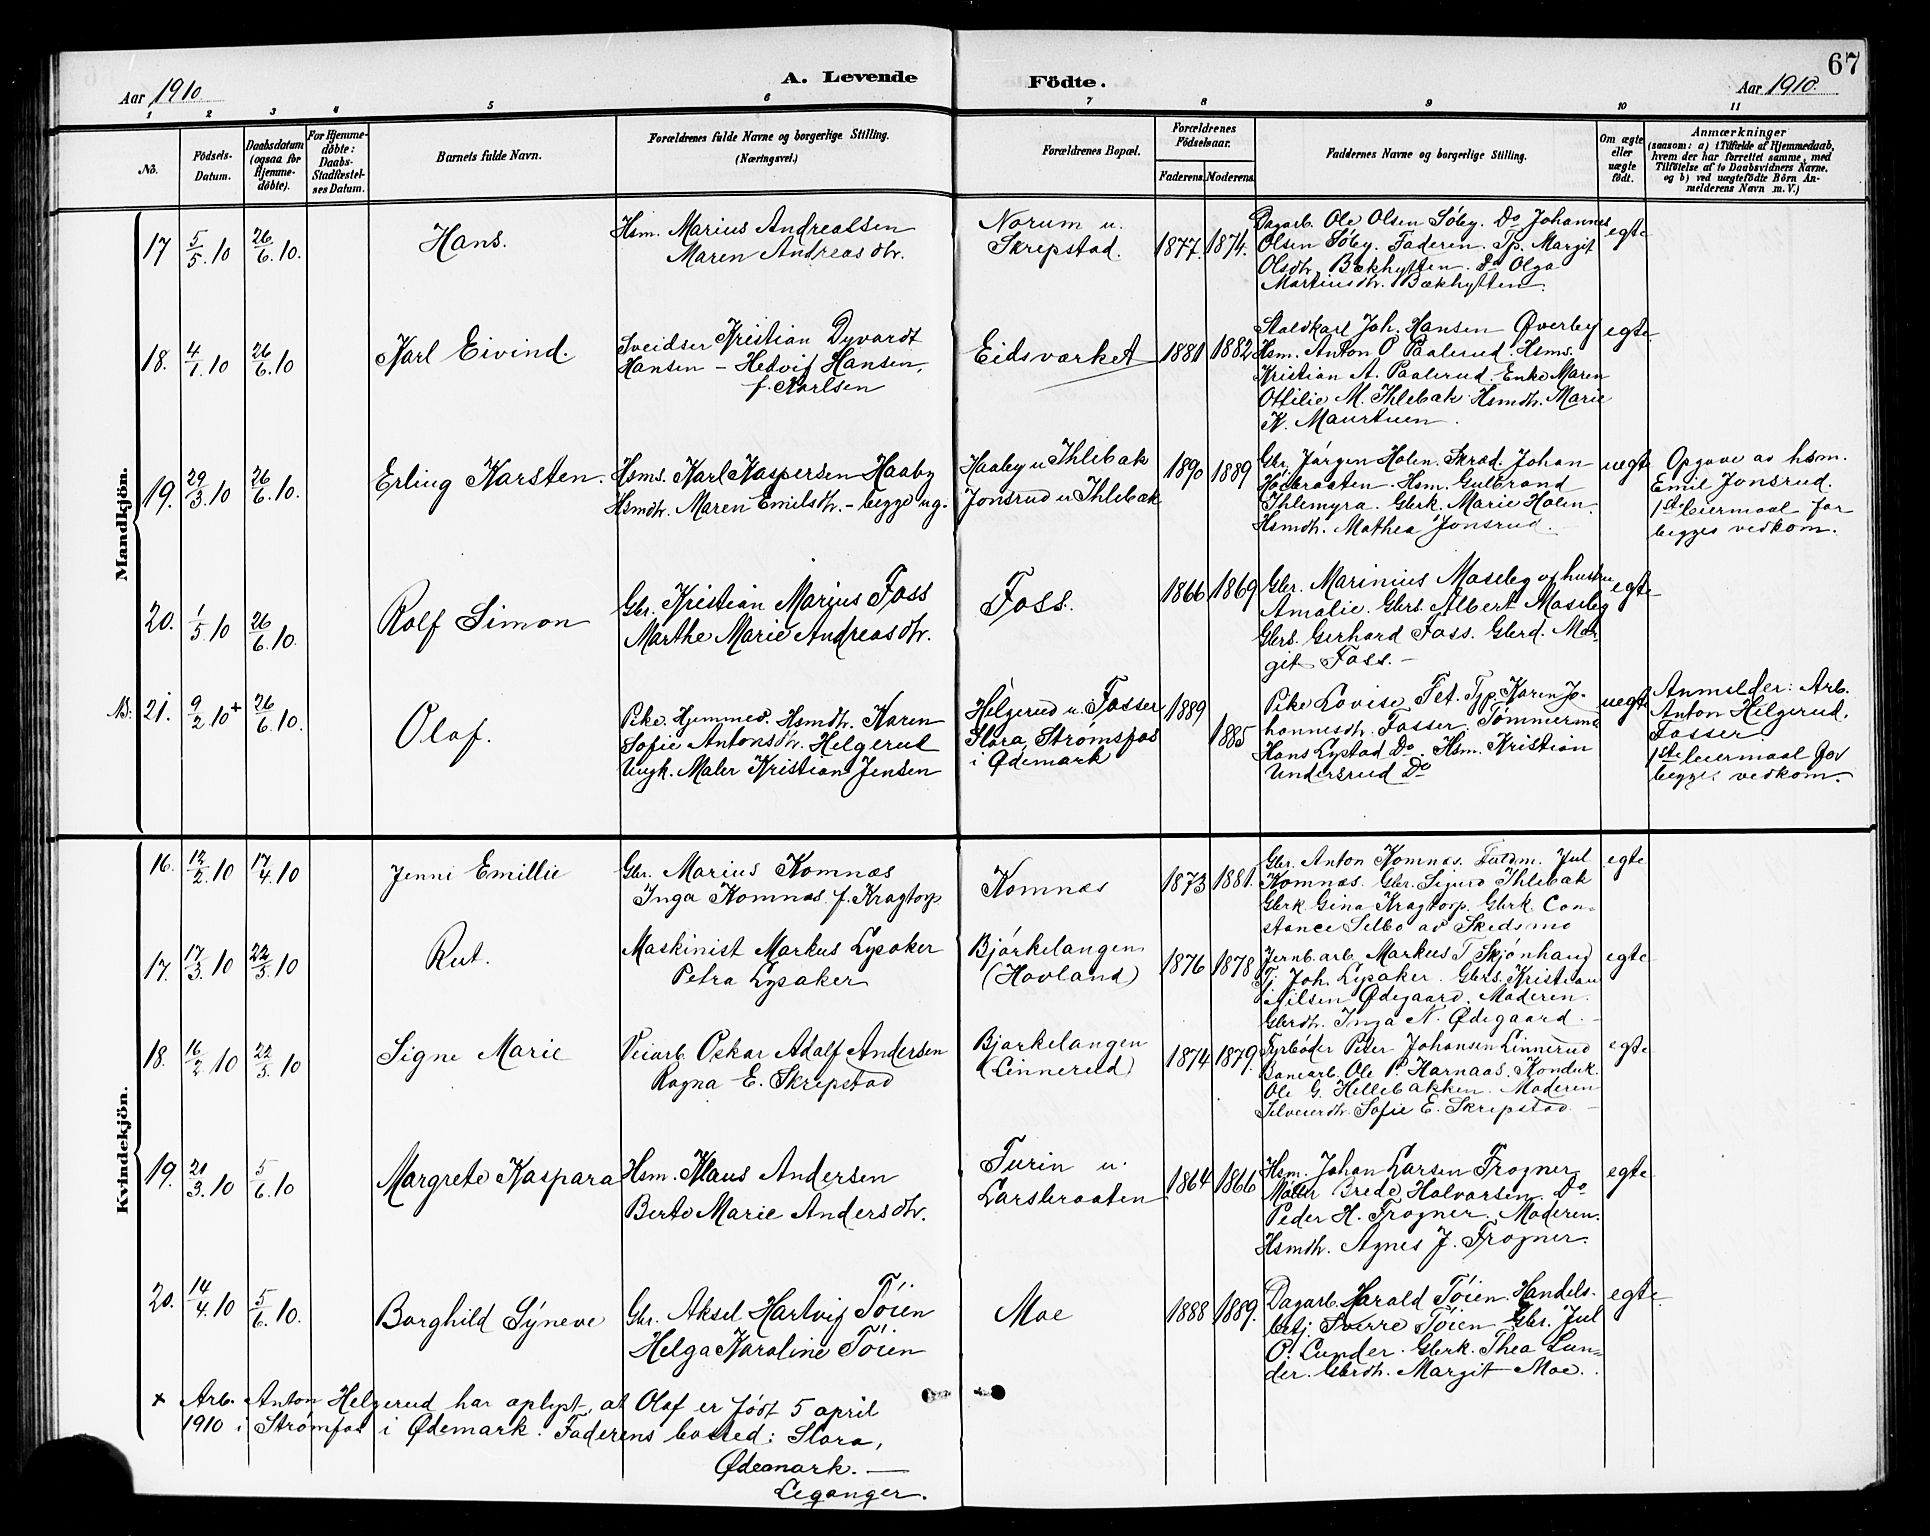 67
A. Levende Födte.
Aar 1910. Aar 1910.
1 2 3 4 5 6 7 8 9 10 11
No.
Födsels-
Datum.
Daabsdatum
(ogsaa for
Hjemme-
döbte).
For Hjemme-
döbte:
Daabs-
Stadfæstel-
ses Datum.
Barnets fulde Navn.
Forældrenes fulde Navne og borgerlige Stilling.
(Næringsvei.)
Forældrenes Bopæl.
Forældrenes
Födselsaar.
Faderens. Moderens.
Faddernes Navne og borgerlige Stilling.
Om ægte
eller
uægte
födt.
Anmærkninger
(saasom: a) i Tilfælde af Hjemmedaab,
hvem der har forrettet samme, med
Tilföielse af to Daabsvidners Navne,
og b) ved uægtefödte Börn An-
melderens Navn m. V.)
Mandkjön.
17 5/5.10 26/6.10.
Hans.
Hsm. Marius Andreassen
Maren Andreasdtr.
Norum u.
Skrepstad.
1877. 1874.
Dagarb. Ole Olsen Søby. Do Johannes
Olsen Søby. Faderen. Tp. Margit
Olsdtr. Bækhytten. Do Olga
Martinsdtr. Bækhytten.
egte
18. 4/1.10 26/6.10
Karl Eivind.
Sveidser Kristian Dyvardt
Hansen - Hedvig Hansen,
f. Karlsen
Eidsverket
1881 1882
Staldkarl Joh. Hansen Øverby
Hsm. Anton O Paalerud. Hsms.
Kristian A. Paalerud. Enke Maren
Ottilie M. Ihlebæk. Hsmdtr. Marie
K. Maurtuen.
egte
19. 29/3.10 26/6.10.
Erling Karsten.
Hsms. Karl Kaspersen Haaby
Hsmdtr. Maren Emilsdtr. - begge ug.
Haaby u Ihlebæk
Jonsrud u Ihlebæk
1890 1889
Gbr. Jørgen Holen. Skræd. Johan
Høibraaten. Hsm. Gulbrand
Ihlemyra. Gbrk. Marie Holen.
Hsmdtr. Mathea Jonsrud.
uegte
Opgave av hsm.
Emil Jonsrud.
1ste leiermaal for
begges vedkom.
20. 1/5.10 26/6.10.
Rolf Simon
Gbr. Kristian Marius Foss
Marthe Marie Andreasdtr.
Foss.
1866 1869
Gbr. Marinius Moseby og hustru
Amalie. Gbrs. Albert Moseby
Gbrs. Gerhard Foss. Gbrd. Mar-
git Foss. -
egte
NB. 21. 9/2.10+ 26/6.10.
Olaf.
Pike. Hjemmev. Hsmdtr. Karen
Sofie Antonsdtr. Helgerud
Ungk. Maler Kristian Jensen
Helgerud u. Fosser
Slora, Strømsfos
i Ødemark
1889
1885
Pike Lovise Fet. Tjp. Karen Jo-
hannesdtr. Fosser. Tømmerma
Hans Lystad Do. Hsm. Kristian
Undersrud Do
uegte
Anmelder: Arb.
Anton Helgerud,
Fosser
1ste leiermaal for
begges vedkom.
Kvindekjön.
16. 12/2.10 17/4.10
Jenni Emillie
Gbr. Marius Komnæs
Inga Komnæs f. Kragtorp
Komnæs
1873 1881.
Gbr. Anton Komnæs. Fuldm. Jul
Komnæs. Gbr. Sigurd Ihlebæk
Gbrk. Gina Kragtorp. Gbrk. Con-
stance Selbo av Skedsmo
egte
17. 17/3.10 22/5.10
Rut.
Maskinist Markus Lysaker
Petra Lysaker
Bjørkelangen
(Hovland)
1876 1878
Jernb. arb. Markus T Skjønhaug
Tj. Joh. Lysaker. Gbrs. Kristian
Nilsen Ødegaard. Moderen.
Gbrdtr. Inga N. Ødegaard. -
egte
18. 16/2.10 22/5.10
Signe Marie
Veiarb. Oskar Adolf Andersen
Ragna E. Skrepstad
Bjørkelangen
(Linnerud)
1874 1879.
Fyrbøder Peter Johansen Linnerud
Banearb. Ole P. Harnaas. Konduk.
Ole G. Hellebakken. Moderen
Selveierdtr. Sofie E. Skrepstad. -
egte
19. 20/3.10 5/6.10
Margrete Kaspara
Hsm. Klaus Andersen
Berte Marie Andersdtr.
Turin u.
Larsbraaten
1864 1866
Hsm. Johan Larsen Frogner
Møller Brede Halvorsen Do
Peder H. Frogner. Moderen.
Hsmdtr. Agnes J. Frogner.
egte
20. 14/4.10 5/6.10.
Borghild Syneve
Gbr. Aksel Hartvig Tøien
Helga Karoline Tøien
Moe
1888 1889.
Dagarb. Harald Tøien. Handels-
betj. Sverre Tøien Gbr. Jul
O. Lunder. Gbrk. Thea Lun-
der. Gbrdtr. Margit Moe.
egte
x Arb. Anton Helgerud har oplyst, at Olaf er født 5 april
1910 i Strømsfos i Ødemark. Faderens bosted: Slora,
Ødemark. —
Leganger.